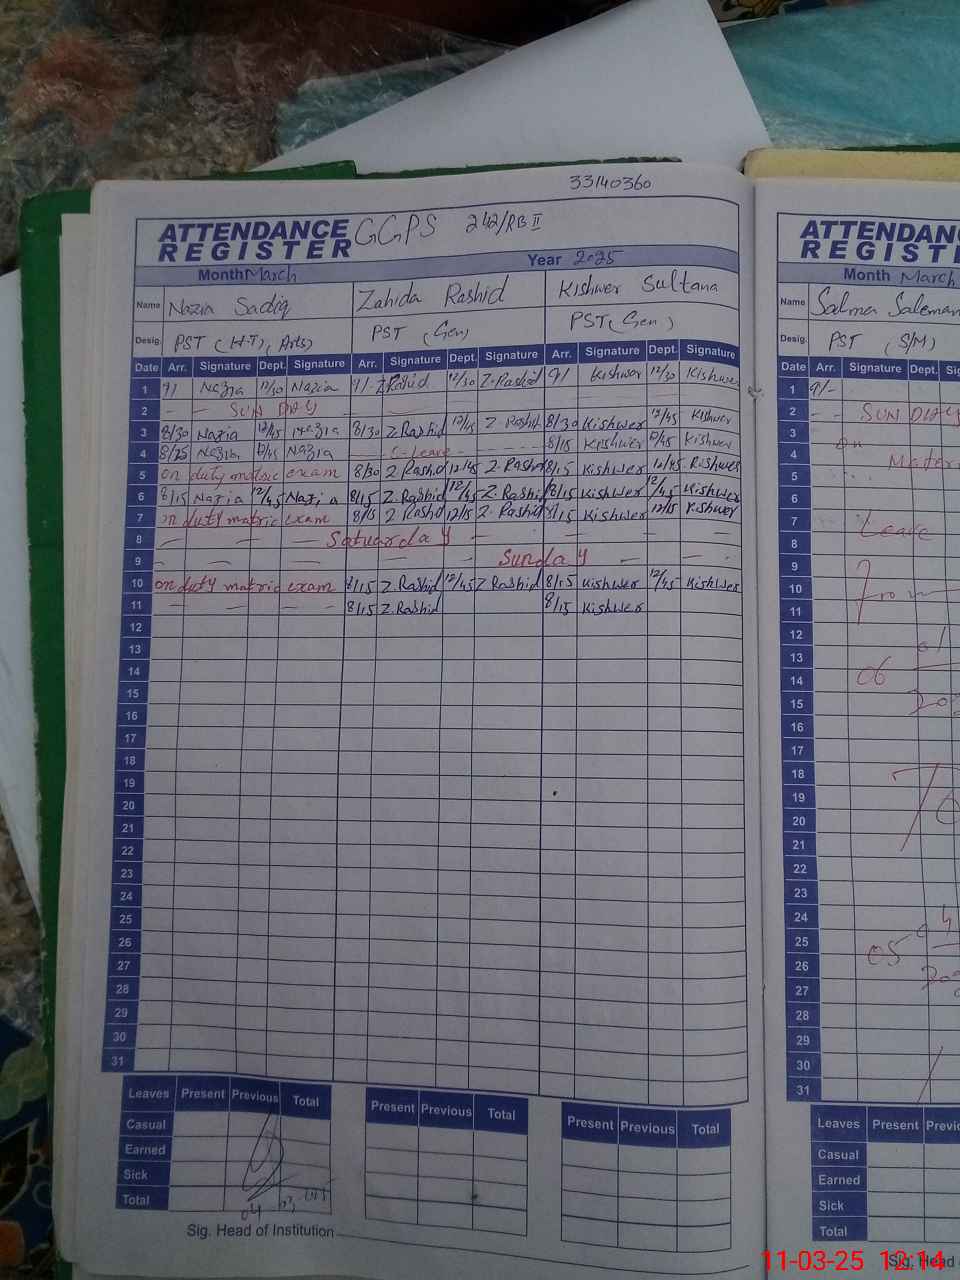 33140360
ATTENDANCE REGISTER GGPS 242/RB II
Month March Year 2025
Name Nazia Sadiq Zahida Rashid Kishwer Sultana
Desig. PST (H-T), (Arts) PST (Gen) PST (Gen)
Date Arr. Signature Dept. Signature Arr. Signature Dept. Signature Arr. Signature Dept. Signature
1 9/ Nazia 12/30 Nazia 9/- Z.Rashid 12/30 Z.Rashid 9/ Kishwer 12/30 Kishwer
2 - - SUN DAY
3 8/30 Nazia 12/45 Nazia 8/30 Z.Rashid 12/45 Z.Rashid 8/30 Kishwer 12/45 Kishwer
4 8/25 Nazia 12/45 Nazia C-Leave 8/15 Kishwer 12/45 Kishwer
5 on duty matric exam 8/30 Z.Rashid 12/45 Z.Rashid 8/15 Kishwer 12/45 Kishwer
6 8/15 Nazia 12/45 Nazia 8/15 Z.Rashid 12/45 Z.Rashid 8/15 Kishwer 12/45 Kishwer
7 on duty matric exam 8/15 Z.Rashid 12/15 Z.Rashid 8/15 Kishwer 12/15 Kishwer
8 - - - Satuarday - - - -
9 - - - - Sunday - - -
10 on duty matric exam 8/15 Z.Rashid 12/45 Z.Rashid 8/15 Kishwer 12/45 Kishwer
11 - - - - 8/15 Z.Rashid 8/15 Kishwer
12
13
14
15
16
17
18
19
20
21
22
23
24
25
26
27
28
29
30
31
Leaves Present Previous Total Present Previous Total Present Previous Total
Casual
Earned
Sick
Total
04
Sig. Head of Institution
ATTENDANCE
REGISTER
Month March
Name Salma Saleman
Desig. PST (S/M)
Date Arr. Signature Dept.
1 9/-
2 - - SUN DAY
3 on
4
5
6
7 Leave
8
9
10 From
11
12
13 01
14 06
15
16
17
18 To
19
20
21
22
23
24 04
25 05
26
27
28
29
30
31
Leaves Present
Casual
Earned
Sick
Total
Sig. Head
11-03-25 12:14